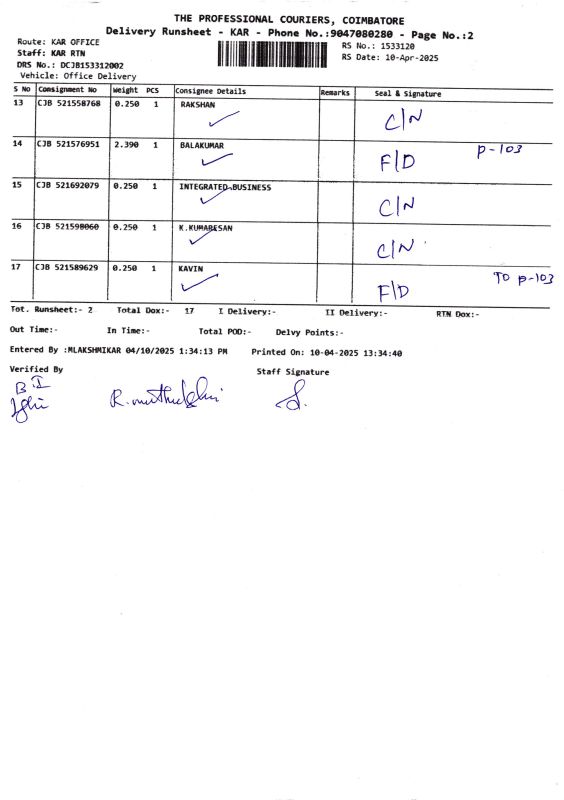 THE PROFESSIONAL COURIERS, COIMBATORE
Delivery Runsheet - KAR - Phone No.:9047080280 - Page No.:2
Route: KAR OFFICE
RS No.: 1533120
Staff: KAR RTN
RS Date: 10-Apr-2025
DRS No.: DCJB153312002
Vehicle: Office Delivery
S No Consignment No Weight PCS Consignee Details Remarks Seal & Signature
13 CJB 521558768 0.250 1 RAKSHAN C/N
14 CJB 521576951 2.390 1 BALAKUMAR F/D P-103
15 CJB 521692079 0.250 1 INTEGRATED BUSINESS C/N
16 CJB 521598060 0.250 1 K.KUMARESAN C/N
17 CJB 521589629 0.250 1 KAVIN F/D TO P-103
Tot. Runsheet:- 2 Total Dox:- 17 I Delivery:- II Delivery:- RTN Dox:-
Out Time:- In Time:- Total POD:- Delvy Points:-
Entered By :MLAKSHMIKAR 04/10/2025 1:34:13 PM Printed On: 10-04-2025 13:34:40
Verified By Staff Signature